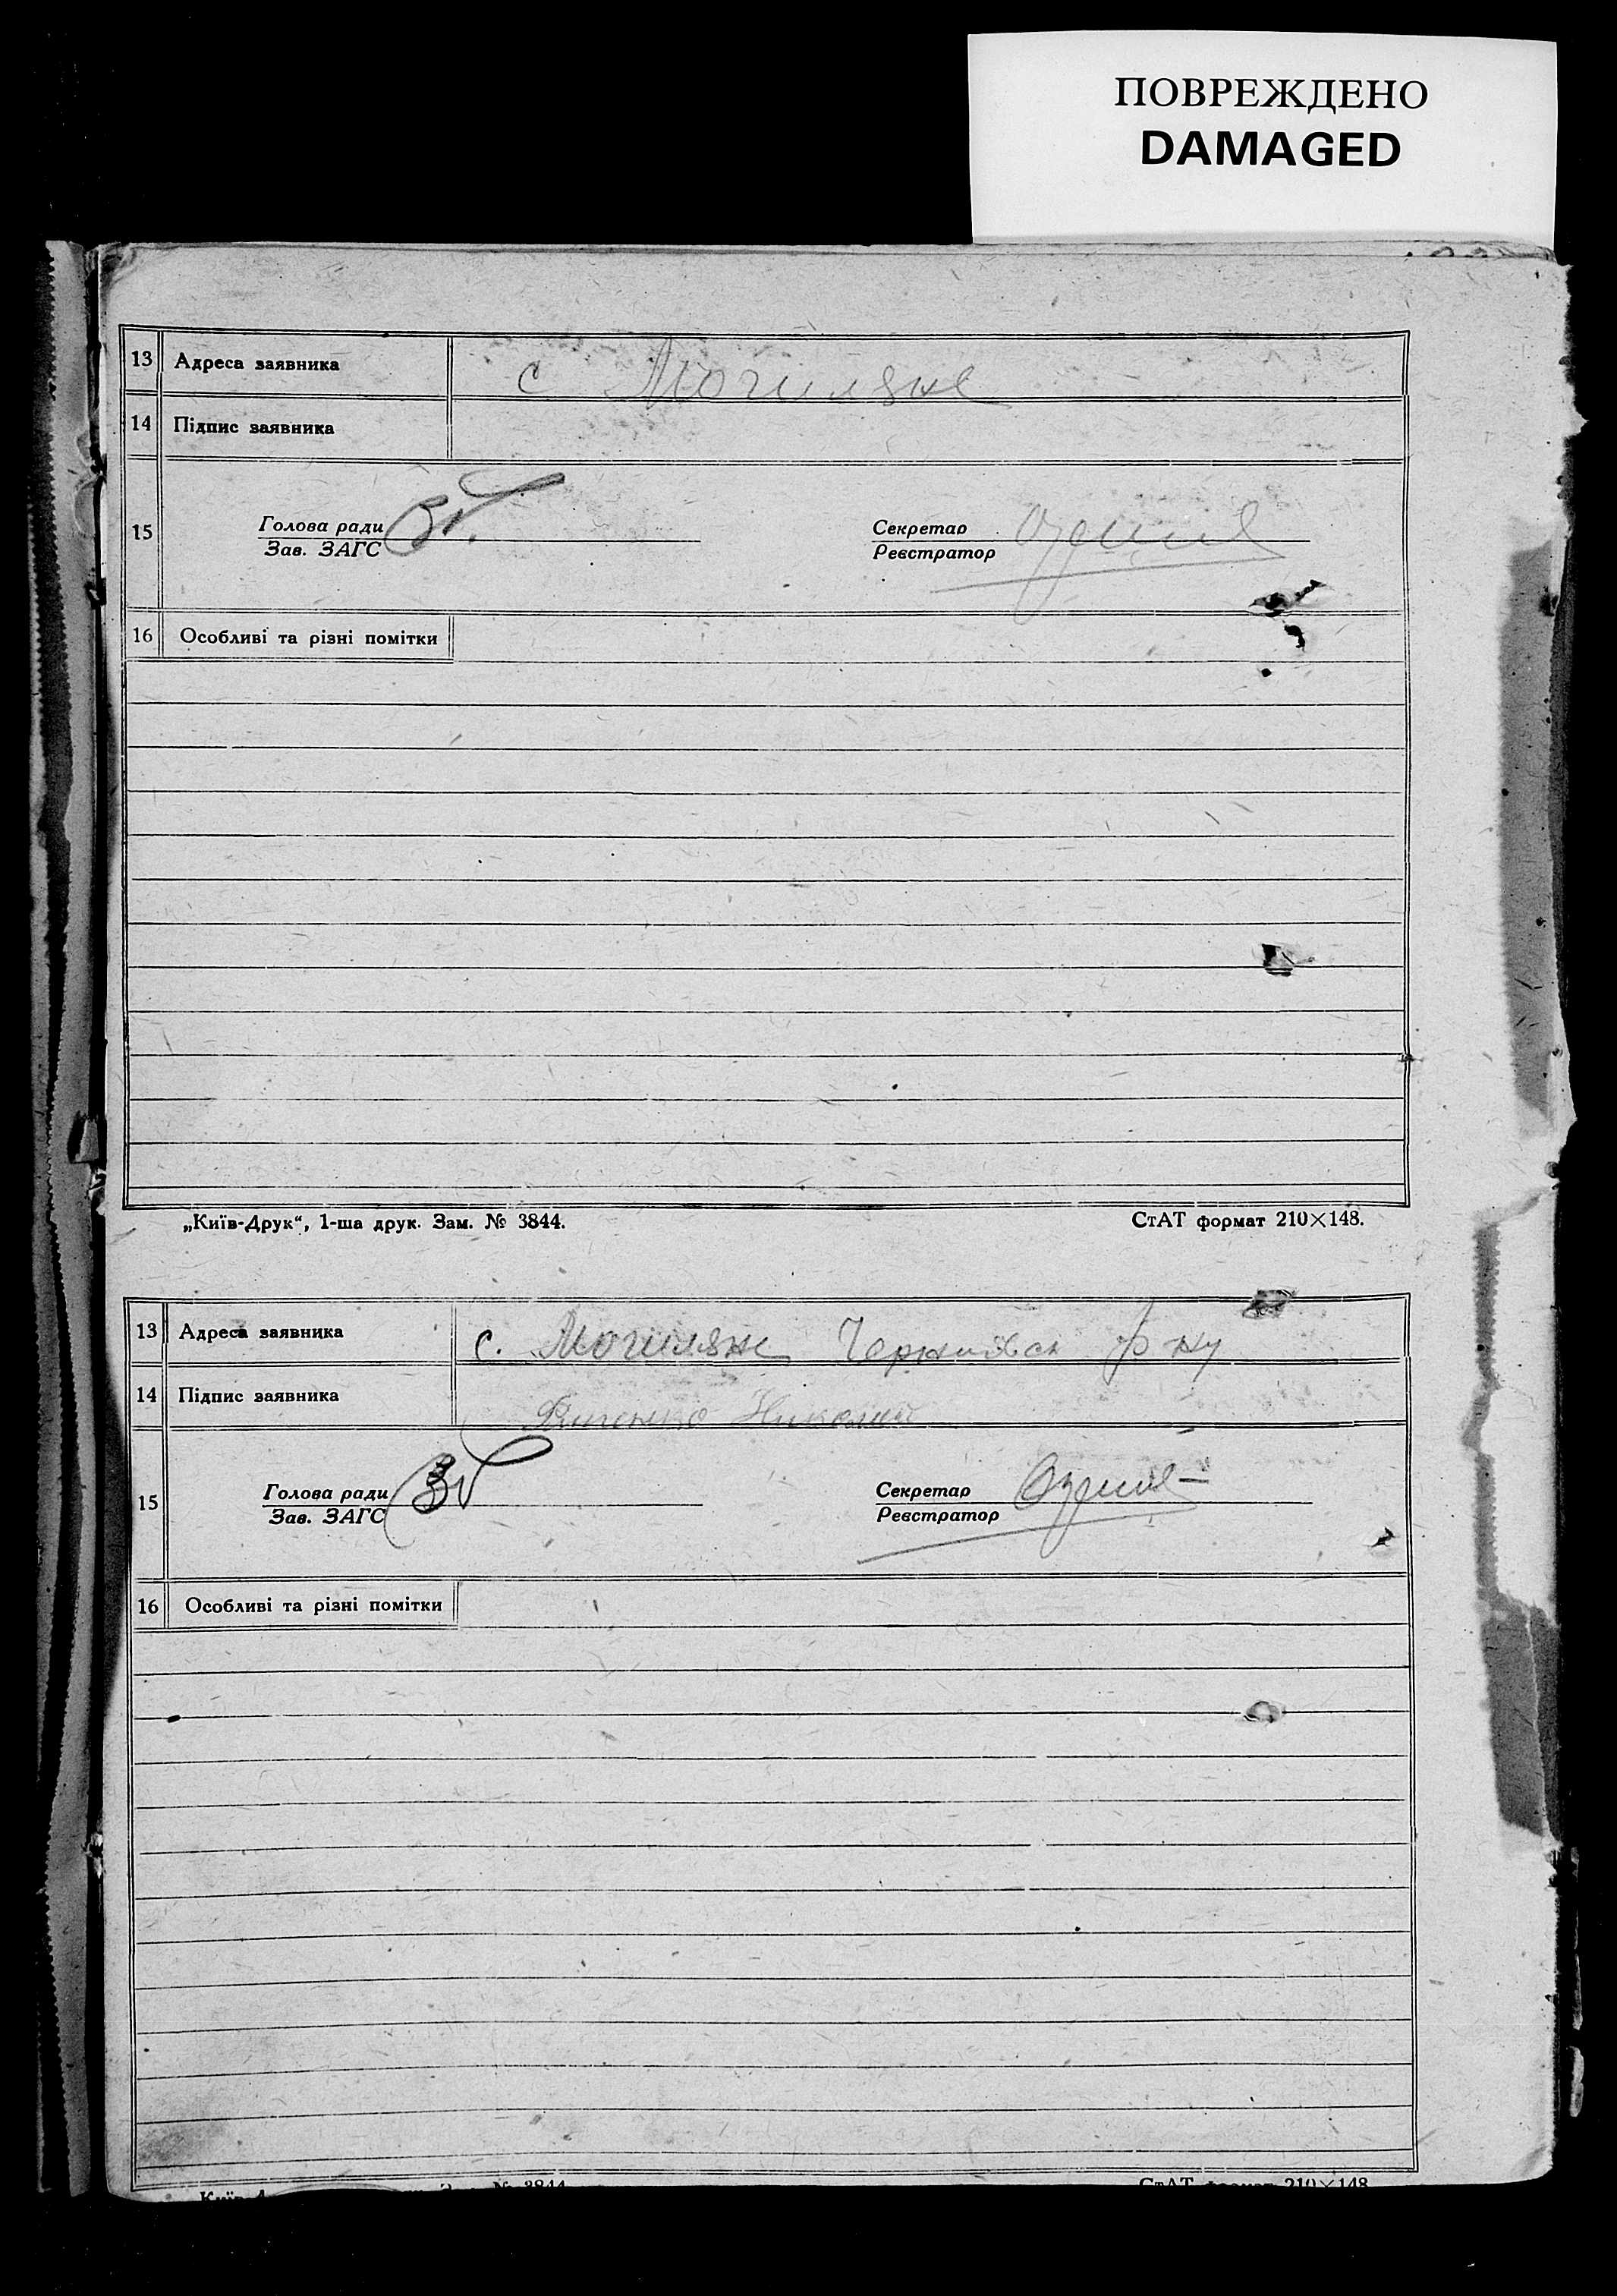 ПОВРЕЖДЕНО
DAMAGED
13 Адреса заявника с Могиляне
14 Підпис заявника
15 Голова ради Секретар
Зав. ЗАГС Реєстратор
16 Особливі та різні помітки
„Київ-Друк“, 1-ша друк. Зам. № 3844. СтАТ формат 210×148.
13 Адреса заявника с. Могиляне р ну
14 Підпис заявника Николай
15 Голова ради Секретар
Зав. ЗАГС Реєстратор
16 Особливі та різні помітки
№ 3844 СтАТ формат 210×148